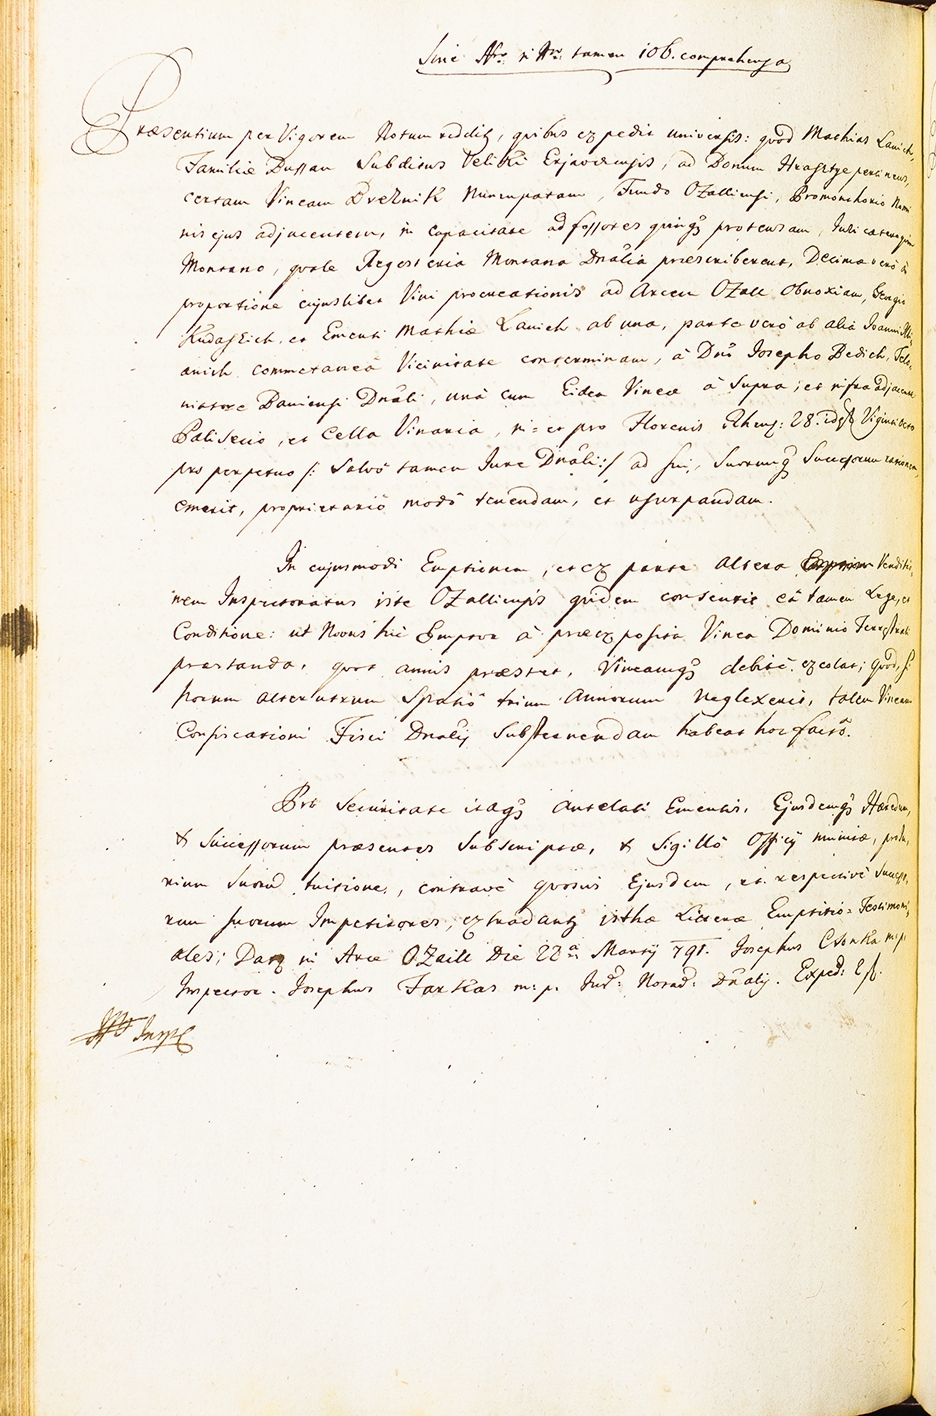 Sine Nro. in Nro. tamen 106. comprehensa
Præsentium per Vigorem Notum redditq, quibus expedit universis: quod Mathias Lanich,
Familiæ Dussan Subditus Veliki Erjavcensis, ad Domum Hrasztye pertinens,
certam Vineam Breznik Nuncupatam, Fundo Ozalliensi, Promonthorio Nomi
nis ejus adjacentem, in capacitate ad fossores quinq protensam, Juri cæteroquin
Montano, quale Regesteria Montana Dnalia præscriberent, Decima vero a
proportione cujuslibet Vini procreationis ad Arcem Ozall Obnoxiam, Georgio
et Ementi Mathiæ Lanich ab una, parte vero ab alia Joanni
anich commetanea Vicinitate conterminam, â Dno Josepho Bedich,
Dnali, unâ cum Eidem Vineæ â Supra, et infra adjacente
Paliseto, et Cella Vinaria, in = et pro Florenis Rhens: 28. id est Viginti octo
jus perpetuo /: Salvô tamen Jure Dnali :/ ad sui, Suorumq Successorum rationem
emerit, proprietariô modô tenendam, et usurpandam.
In cujusmodi Emptionem, et ex parte altera Venditio
nem Inspectoratus iste Ozalliensis quidem consensit eâ tamen Lege, et
Conditione: ut Novus hic Emptor â præexposita Vinea Dominio Terrestrali
præstanda, quot annis præstet, Vineamq debitè excolat; Quod, si
horum alterutrum Spatiô trium Annorum neglexerit, talem Vineam
Confiscationi Fisci Dnalis Substernendam habeat hoc factô.
Pro Securitate itaq Antelati Ementis, Ejusdemq Hæredum,
& Successorum præsentes Subscriptæ, & Sigillô Officij munitæ,
rium Suorum tuitione, contravè quosvis Ejusdem, et respectivè Successo
rum suorum Impetitores, extradantq isthæ Literæ Emptitio = Testimoni
ales; Datq in Arce Ozaill Die 22a Martij 791. Josephus Csonka m:p:
Inspector. Josephus Farkas m:p. Jurd: Norad: Dnalij. Exped: